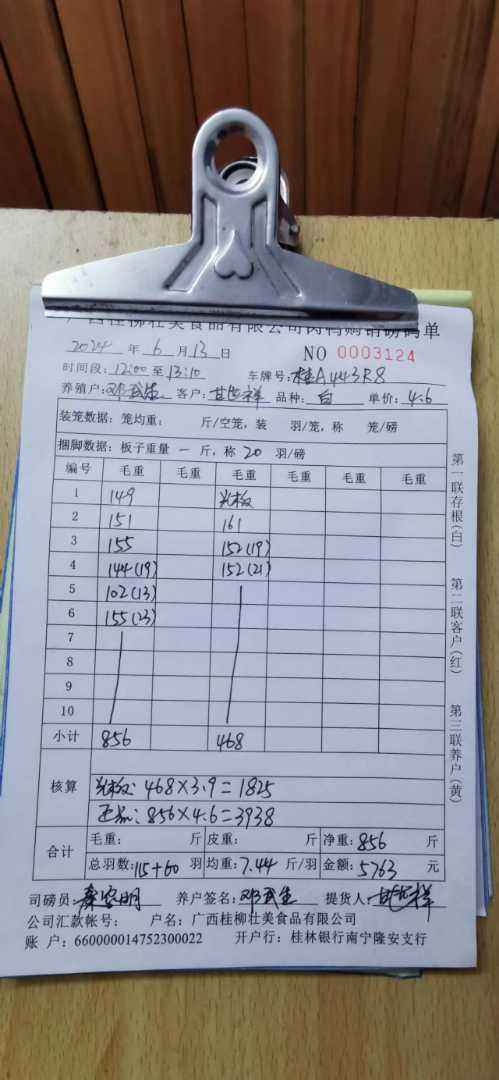 广西桂柳壮美食品有限公司肉鸭购销磅码单
2024 年 6 月 13 日 NO 0003124
时间段: 12:00 至 13:10 车牌号: 桂A443R8
养殖户: 邓武生 客户: 甘世祥 品种: 白 单价: 4.6
装笼数据: 笼均重: 斤/空笼, 装 羽/笼, 称 笼/磅
捆脚数据: 板子重量 一 斤, 称 20 羽/磅
编号 毛重 毛重 毛重 毛重 毛重 毛重
1 149
2 151 161
3 155 152(19)
4 144(19) 152(21)
5 102(13)
6 155(23)
7
8
9
10
小计 856 468
核算 468×3.9=1825
正品: 856×4.6=3938
合计 毛重: 斤 皮重: 斤 净重: 856 斤
总羽数: 115+60 羽 均重: 7.44 斤/羽 金额: 5763 元
司磅员: 养户签名: 邓武生 提货人: 甘世祥
公司汇款帐号: 户名: 广西桂柳壮美食品有限公司
账 户: 660000014752300022 开户行: 桂林银行南宁隆安支行
第一联存根(白)
第二联客户(红)
第三联养户(黄)